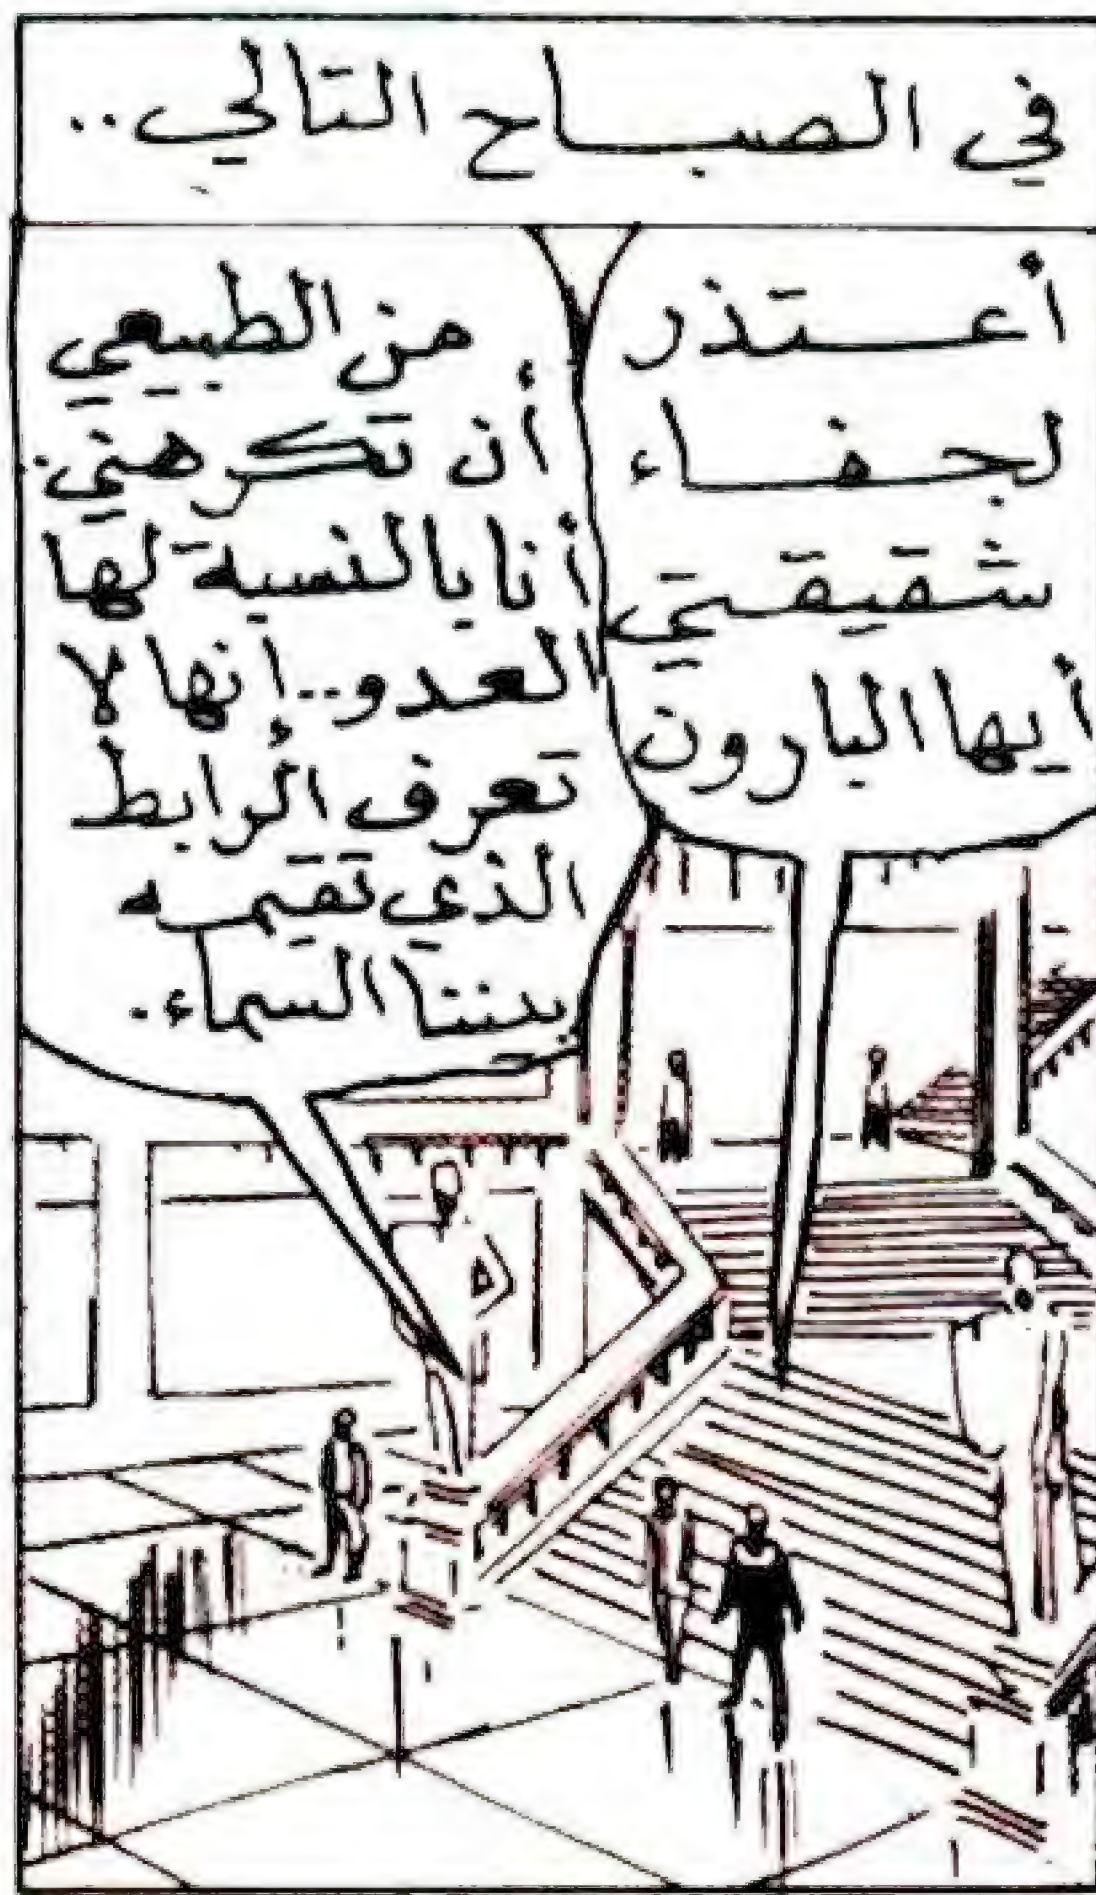 في الصباح التالي..
أعتذر
لجفاء
شقيقتي
أيها البارون
من الطبيعي
أن تكرهني..
أنا بالنسبة لها
العدو.. إنها لا
تعرف الرابط
الذي تقيمه
بيننا السماء.